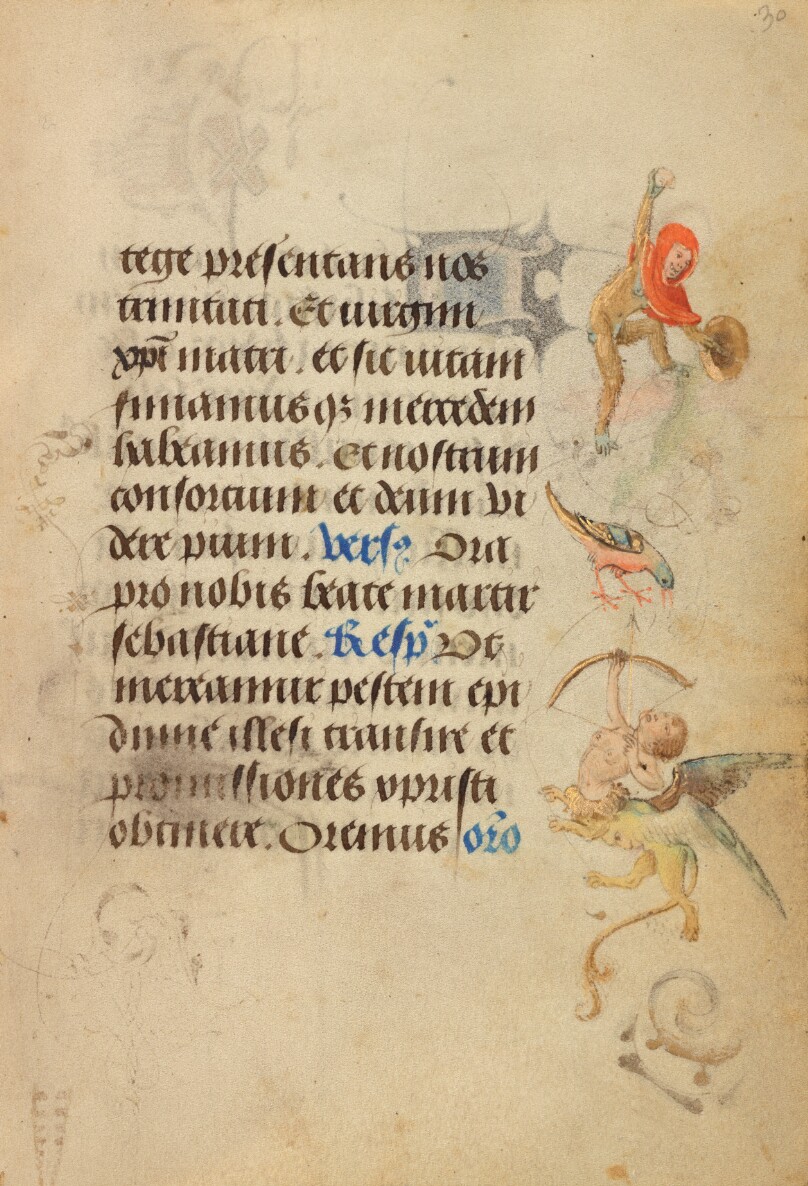 30
tege presentans nos
trinitati. Et uirgini
xpi matri. et sic uitam
finiamus qꝫ mercedem
habeamus. Et nostrum
consortium et deum vi
dere pium. vers⁹ Ora
pro nobis beate martir
sebastiane. Resp̄ Ut
mereamur pestem epi
dimie illesi transire et
promissiones vpristi
obtinere. Oremus or̄o